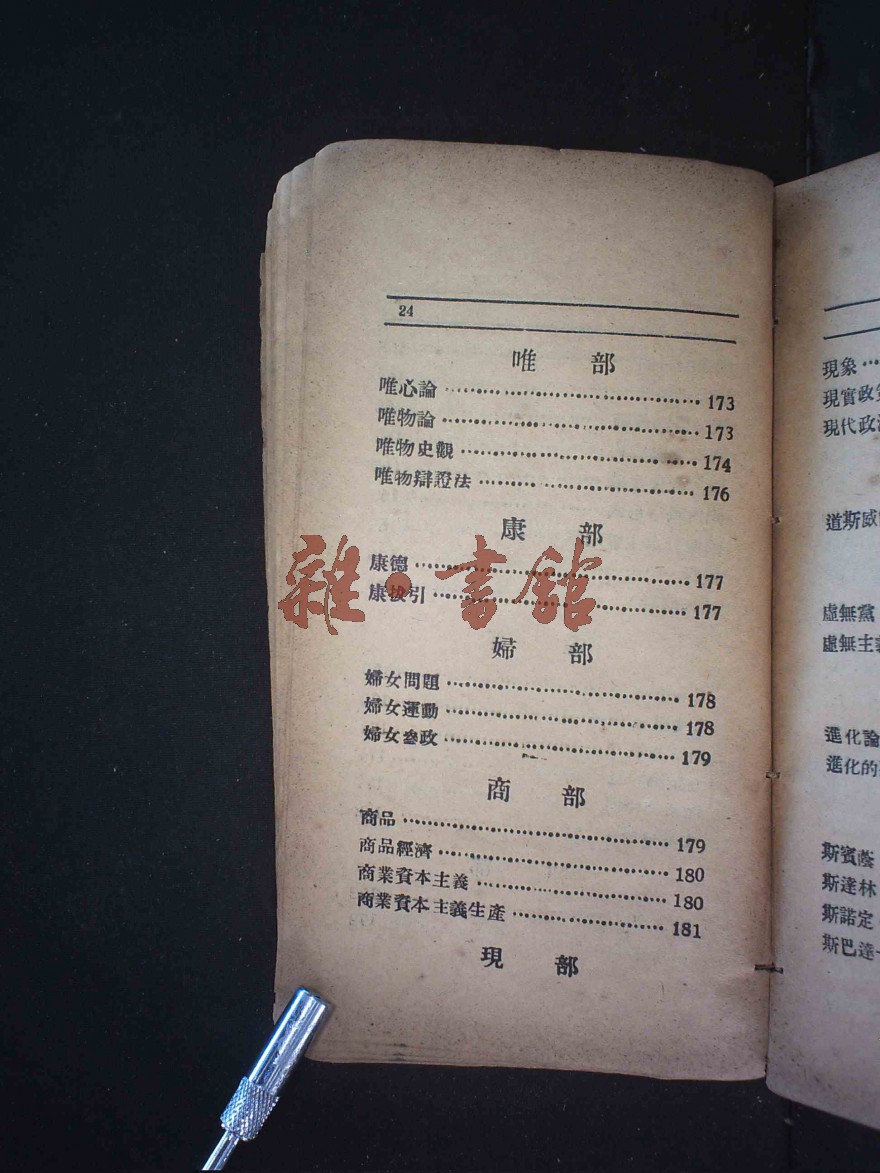 24
唯 部
唯心論 173
唯物論 173
唯物史觀 174
唯物辯證法 176
康 部
康德 177
康拔引 177
婦 部
婦女問題 178
婦女運動 178
婦女參政 179
商 部
商品 179
商品經濟 180
商業資本主義 180
商業資本主義生產 181
現 部
雜·書館
現象
現實政
現代政
道斯威
虛無黨
虛無主
進化論
進化的
斯賓
斯達林
斯諾定
斯巴達